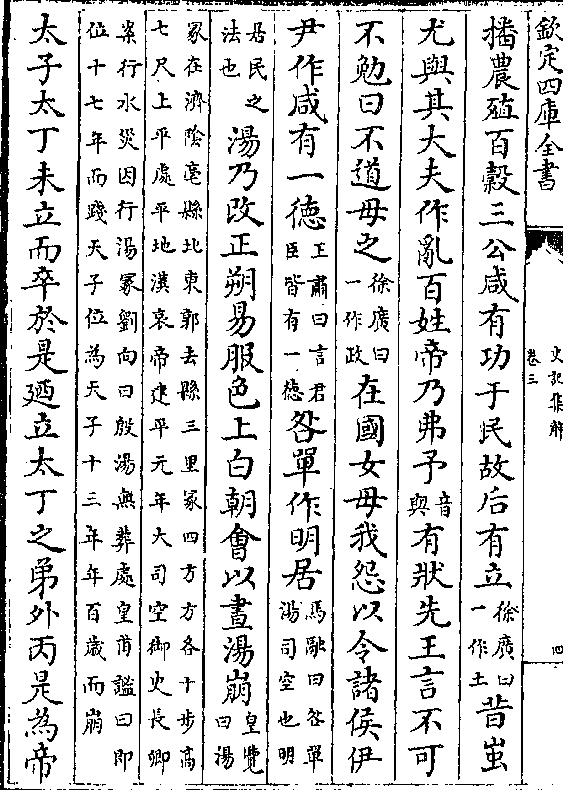 欽定四庫全書
史記集解
卷三
四
播農殖百穀三公咸有功于民故后有立徐廣曰一作土昔蚩
尤與其大夫作亂百姓帝乃弗予音與有狀先王言不可
不勉曰不道毋之徐廣曰一作政在國女毋我怨以令諸侯伊
尹作咸有一徳王肅曰言君臣皆有一徳咎單作明居馬融曰咎單湯司空也明
居民之法也湯乃改正朔易服色上白朝會以晝湯崩皇覽曰湯
冢在濟陰亳縣北東郭去縣三里冢四方方各十步高七尺上平處平地漢哀帝建平元年大司空御史長卿
案行水災因行湯冢劉向曰殷湯無葬處皇甫謐曰即位十七年而踐天子位為天子十三年年百歲而崩
太子太丁未立而卒於是廼立太丁之弟外丙是為帝